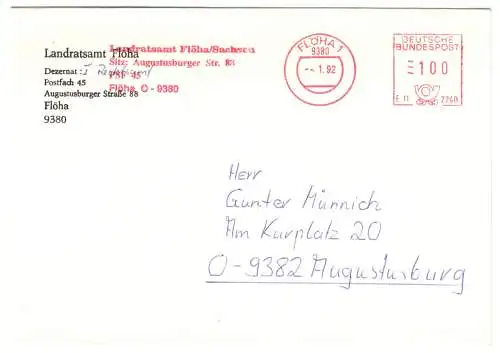 Landratsamt Flöha
Dezernat: I
Postfach 45
Augustusburger Straße 88
Flöha
9380
Landratsamt Flöha/Sachsen
Sitz: Augustusburger Str. 88
PSF 45
Flöha O - 9380
FLÖHA 1
9380
-- 1. 92
DEUTSCHE
BUNDESPOST
100
F 11 7768
Herr
Gunter Münnich
Am Kurplatz 20
O-9382 Augustusburg